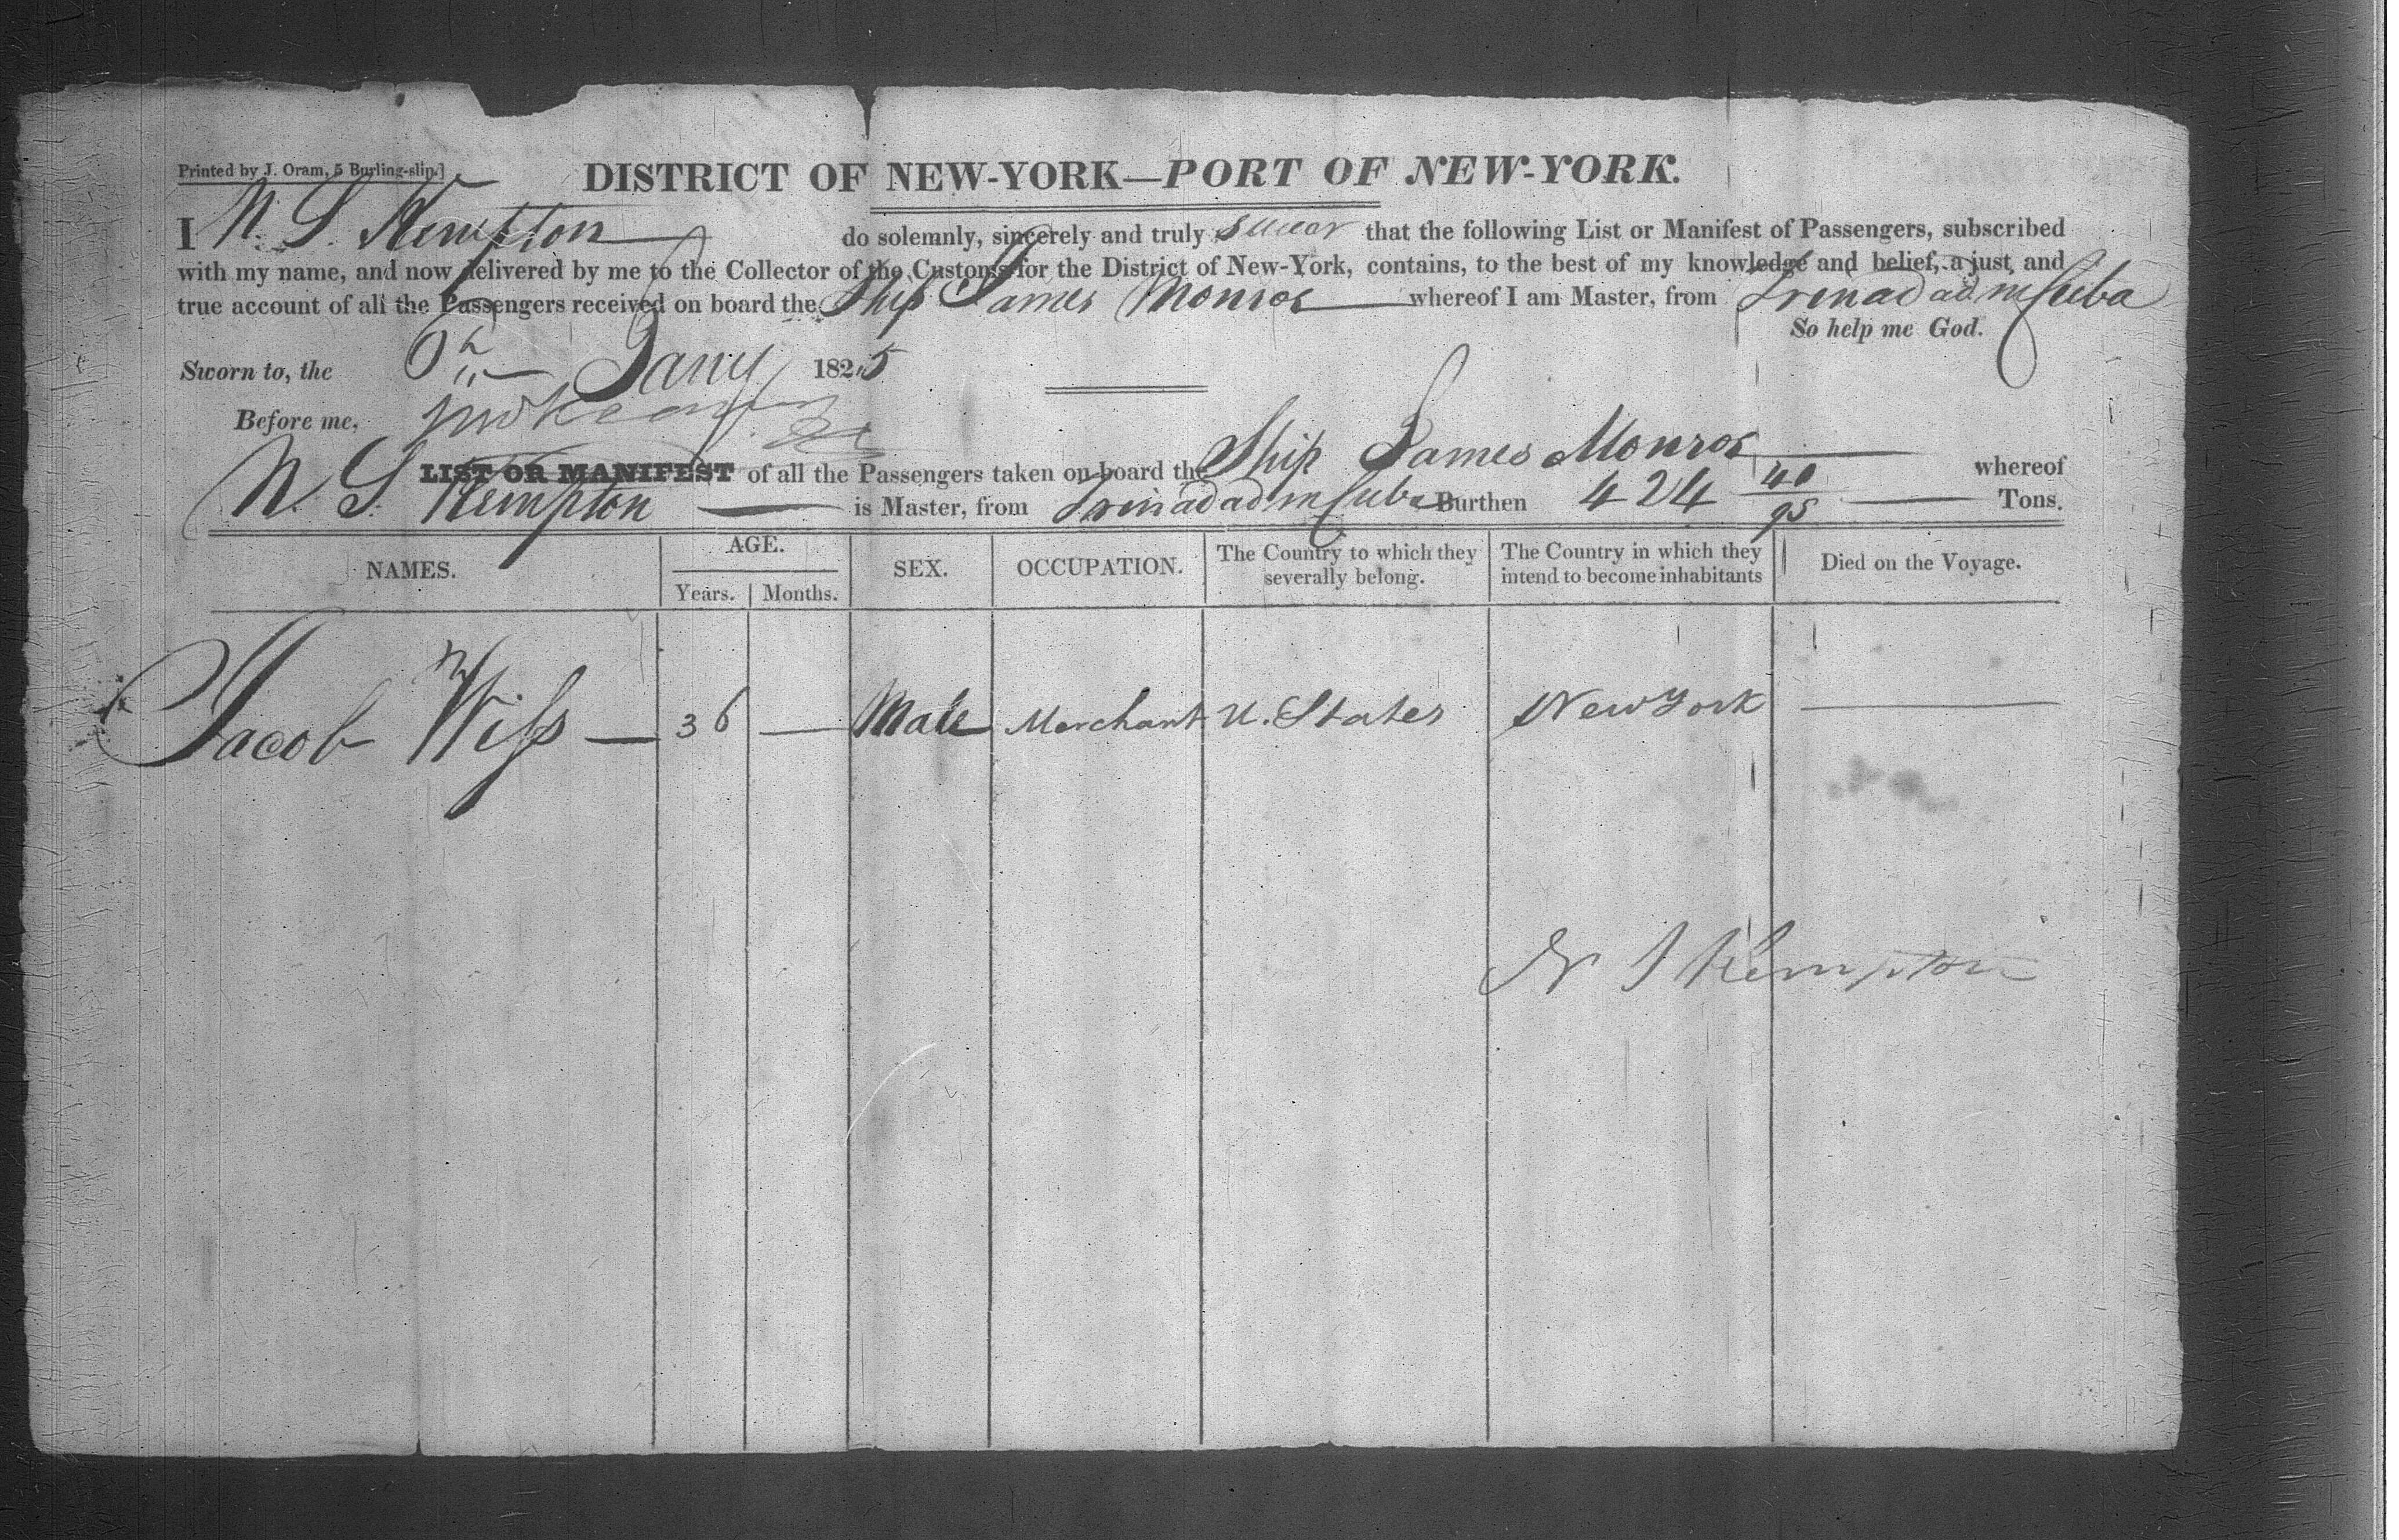 Printed by J. Oram, 5 Burling-slip.]
DISTRICT OF NEW-YORK—PORT OF NEW-YORK.
I N. S. Kempton do solemnly, sincerely and truly swear that the following List or Manifest of Passengers, subscribed
with my name, and now delivered by me to the Collector of the Customs for the District of New-York, contains, to the best of my knowledge and belief, a just and
true account of all the Passengers received on board the Ship James Monroe whereof I am Master, from Trinadad in Cuba
So help me God.
Sworn to, the 6th Jany 1825
Before me,
LIST OR MANIFEST of all the Passengers taken on board the Ship James Monroe whereof
N. S. Kempton is Master, from Trinadad in Cuba Burthen 424 40/95 Tons.
NAMES. AGE. SEX. OCCUPATION. The Country to which they severally belong. The Country in which they intend to become inhabitants Died on the Voyage.
Years. Months.
Jacob Wiss 36 — Male Merchant U. States New York —
N S Kempton